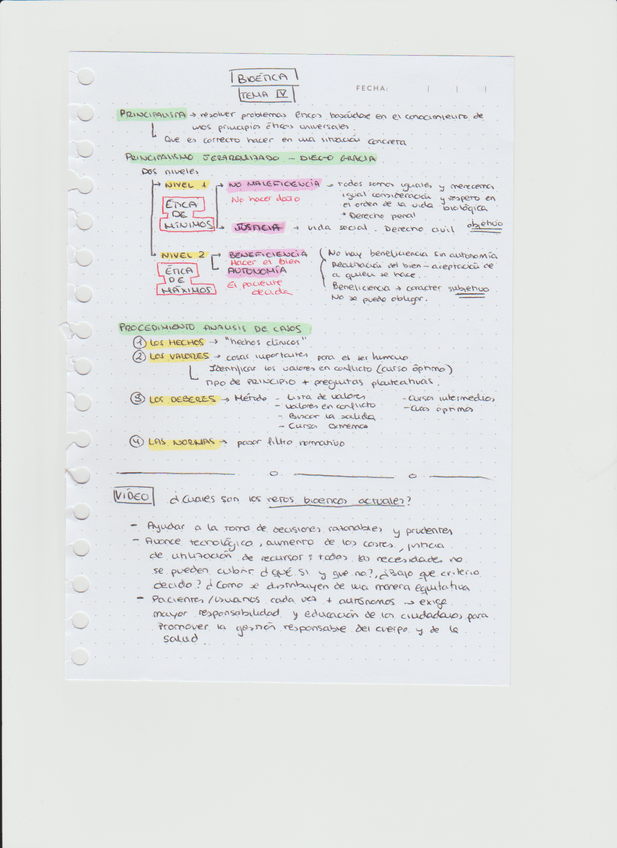 BIOÉTICA
TEMA IV
FECHA:
PRINCIPALISTA → resolver problemas éticos basándose en el conocimiento de
unos principios éticos universales.
Que es correcto hacer en una situación concreta
PRINCIPALISMO JERARQUIZADO - DIEGO GRACIA
DOS niveles
NIVEL 1
ÉTICA
DE
MÍNIMOS
NO MALEFICENCIA → todos somos iguales y merecemos
No hacer daño
igual consideración y respeto en
el orden de la vida biológica
* Derecho penal
JUSTICIA → vida social. Derecho civil objetivo
NIVEL 2
ÉTICA
DE
MÁXIMOS
BENEFICENCIA
Hacer el bien
AUTONOMÍA
El paciente
decida
No hay beneficencia sin autonomía
Realización del bien - aceptación de
a quien se hace.
Beneficencia → carácter subjetivo
No se puede obligar.
PROCEDIMIENTO ANALISIS DE CASOS
1 LOS HECHOS → "hechos clínicos"
2 LOS VALORES → cosas importantes para es ser humano
Identificar los valores en conflicto (curso óptimo)
TIPO DE PRINCIPIO + preguntas planteativas.
3 LOS DEBERES → Método - Lista de valores - Cursos intermedios
- valores en conflicto - Cursos óptimos
- Buscar la salida
- Cursos extremos
4 LAS NORMAS → pasar filtro normativo
VÍDEO ¿Cuales son los retos bioeticos actuales?
- Ayudar a la toma de decisiones razonables y prudentes
- Avance tecnológico, aumento de los costes, justicia
de utilización de recursos: todas las necesidades no
se pueden cubrir ¿Qué SI y que no?, ¿Bajo que criterio
decido? ¿Como se distribuyen de una manera equitativa
- Pacientes/usuarios cada vez + autónomos → exige
mayor responsabilidad y educación de los ciudadanos para
promover la gestión responsable del cuerpo y de la
salud.